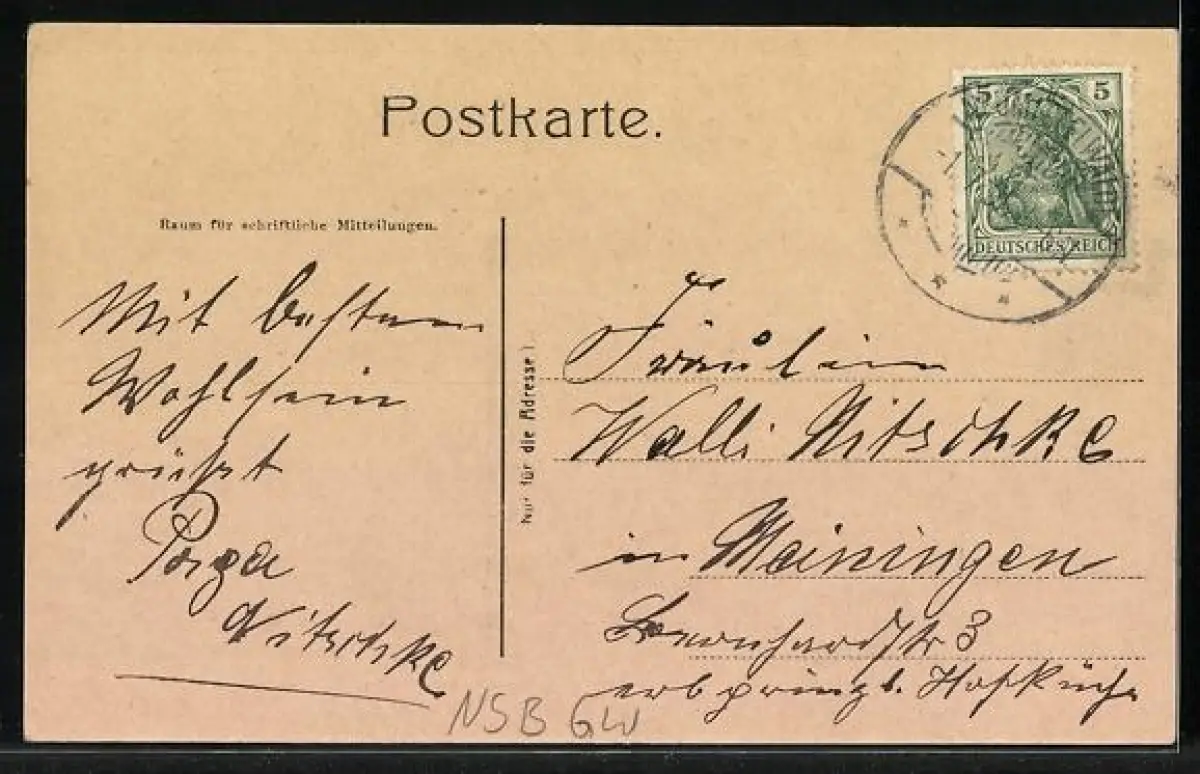 Postkarte.
5 5
DEUTSCHES REICH
Raum für schriftliche Mitteilungen.
Mit bestem
Wohlsein
grüßt
Nitschke
Nur für die Adresse
Fräulein
Walli Nitschke
in Meiningen
Bernhardstr 3
erbprinzl. Hofküche
NSB GW